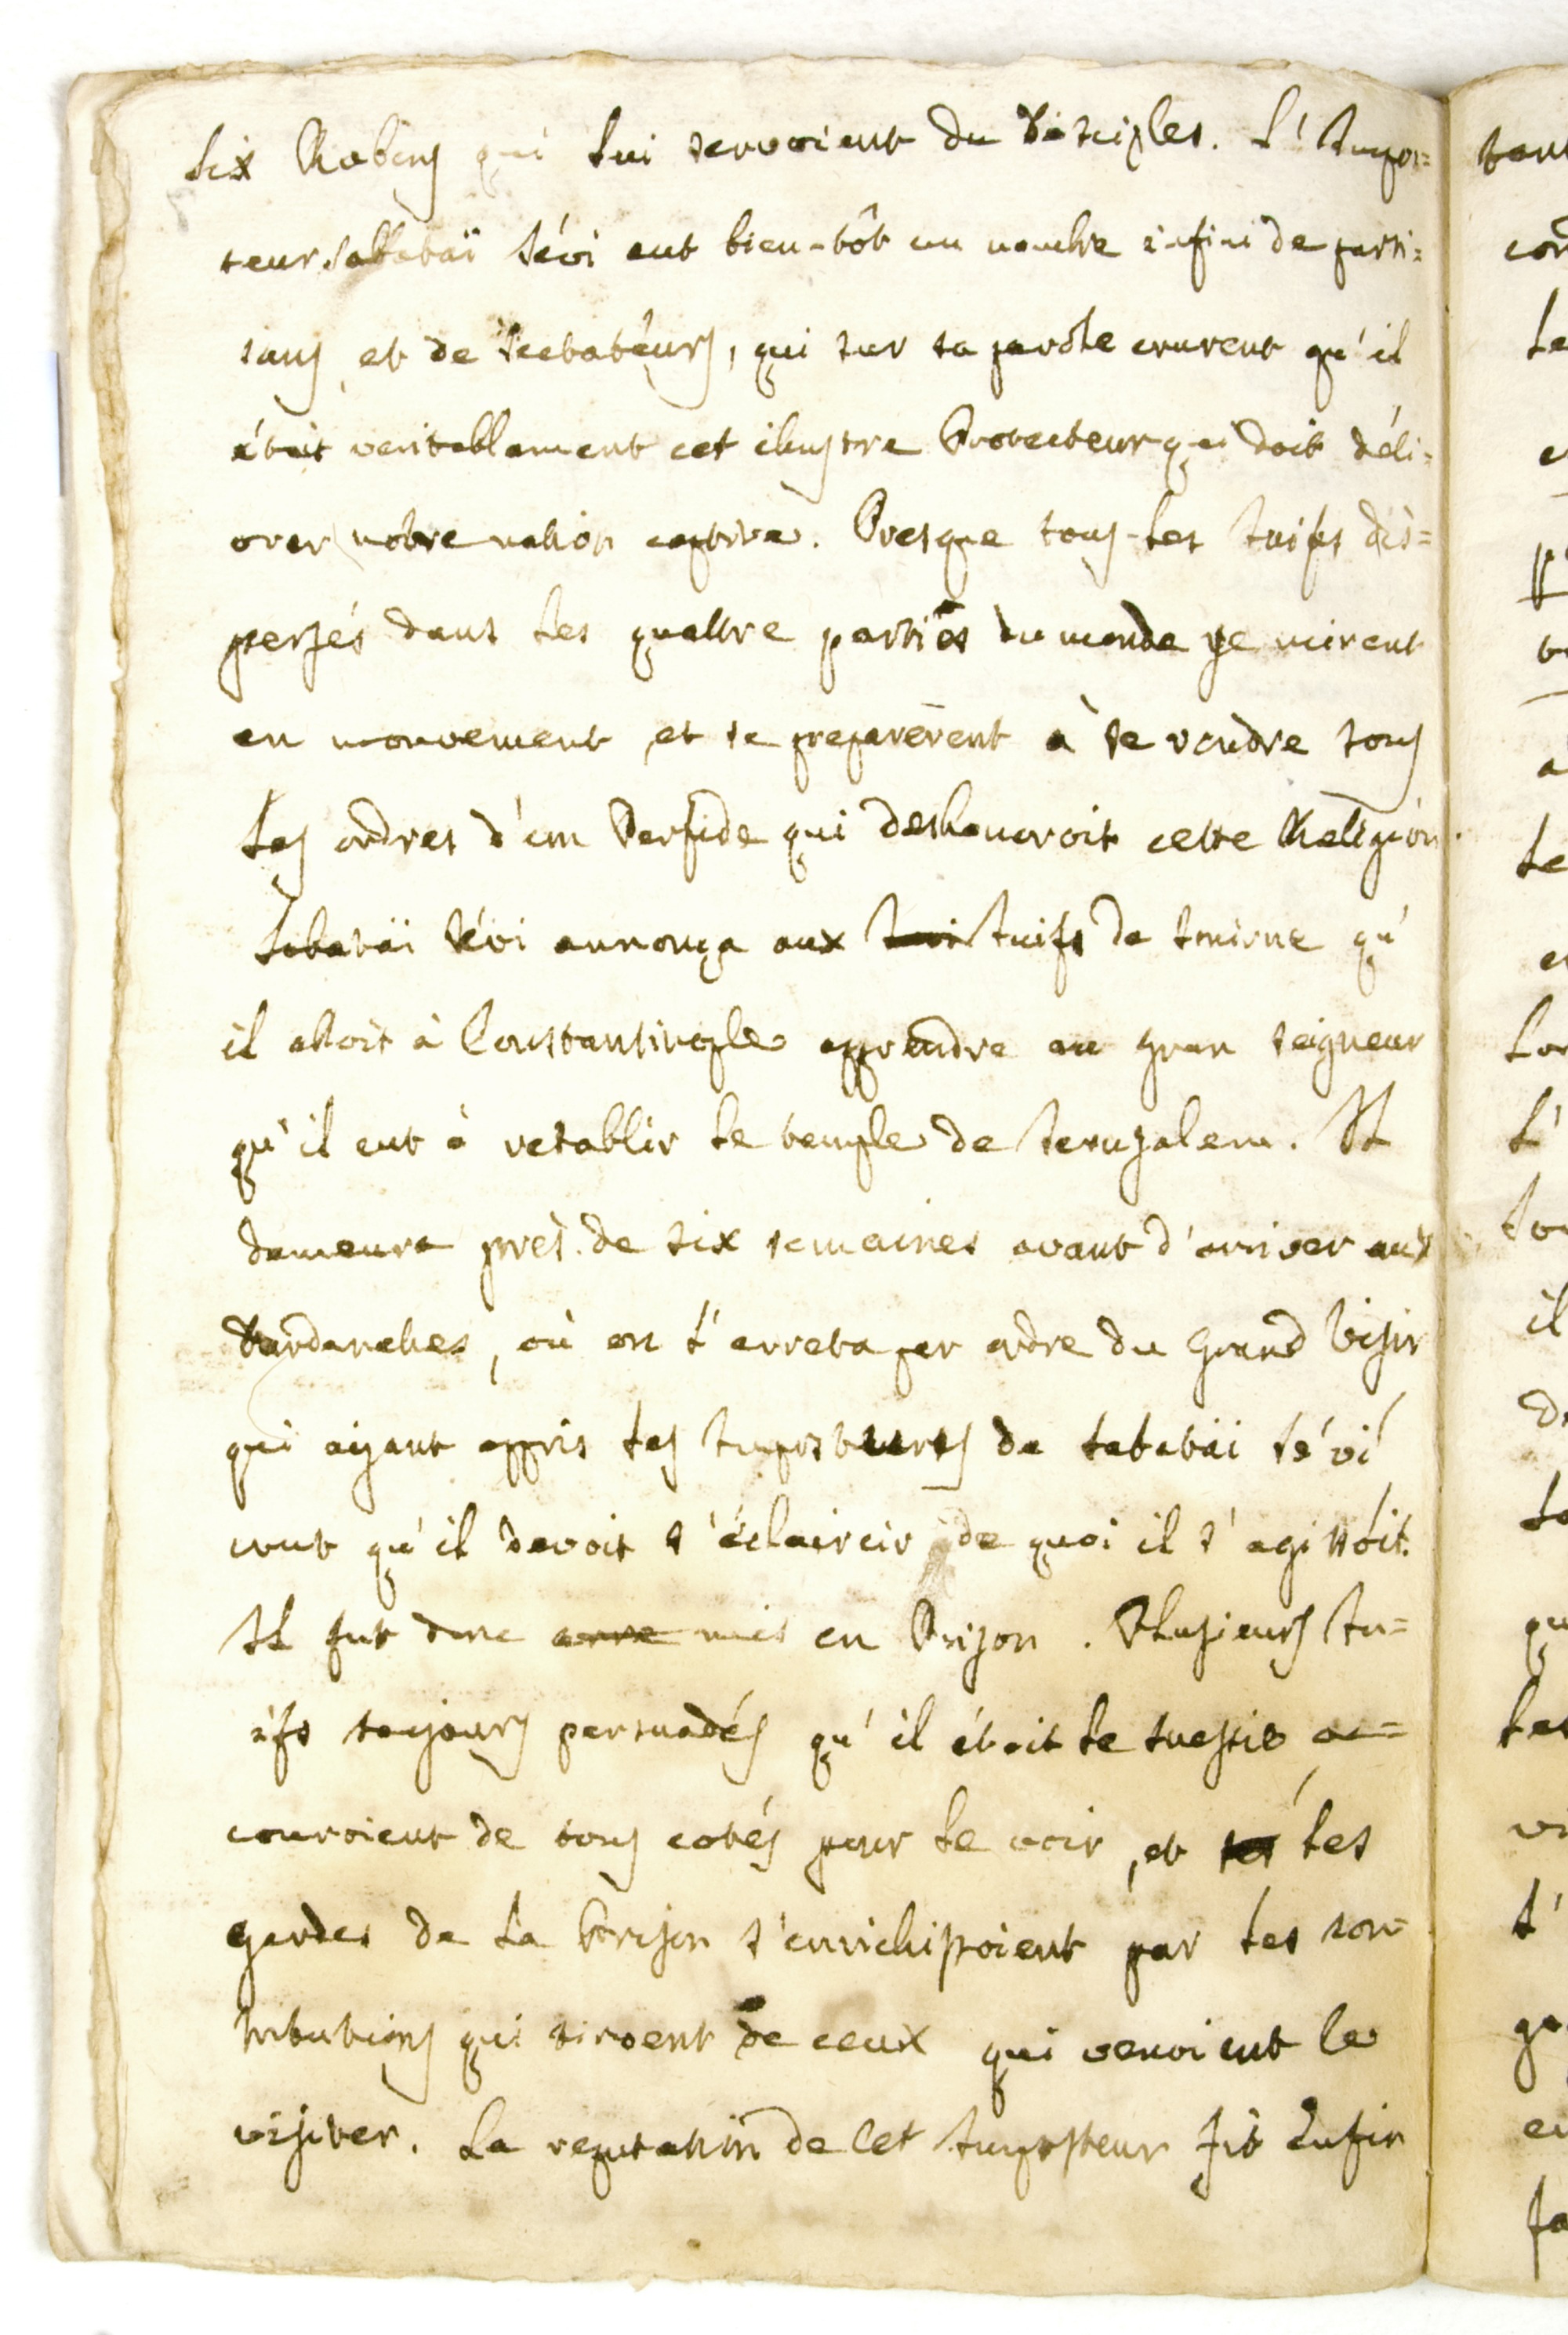 Six Rabins qui lui servoient du Disciples. L'Impos=
teur Sabbataï Sévi eut bien-tôt un nombre infini de parti=
sans, et de Sectateurs, qui sur sa parole crurent qu'il
étoit veritablement cet ilustre Protecteur qui doit déli=
vrer notre nation captive. Presque tous-les Juifs dis=
persés dans les quattre parties du monde se mirent
en mouvement et se preparèrent à se rendre sous
les ordres d'un Perfide qui deshonoroit cette Religion.
Sabataï Sévi annonça aux Juifs de Smirne qu'
il alloit à Constantinople apprendre au gran seigneur
qu'il eut à retablir le temple de Jerusalem. Il
demeura près de six semaines avant d'arriver aux
Dardaneles, où on l'arreta par ordre du Grand Visir
qui aiyant appris les Impostures de Sabataïi Sévi
crut qu'il devoit s'éclaircir de quoi il s'agissóit.
Il fut donc mis en Prison. Plusieurs Ju=
ifs toujours persuadés qu'il étoit le Messie ac=
couroient de tous cotés pour le voir, et les
gardes de la Prison s'enrichissoient par les con=
tributions qui tiroent de ceux qui venoient le
visiter. La reputation de Cet Imposteur fit Enfin